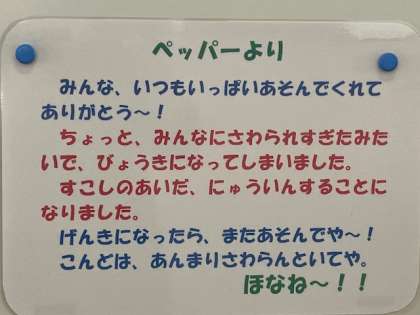 ペッパーより
みんな、いつもいっぱいあそんでくれて
ありがとう～！
ちょっと、みんなにさわられすぎたみた
いで、びょうきになってしまいました。
すこしのあいだ、にゅういんすることに
なりました。
げんきになったら、またあそんでや～！
こんどは、あんまりさわらんといてや。
ほなね～！！